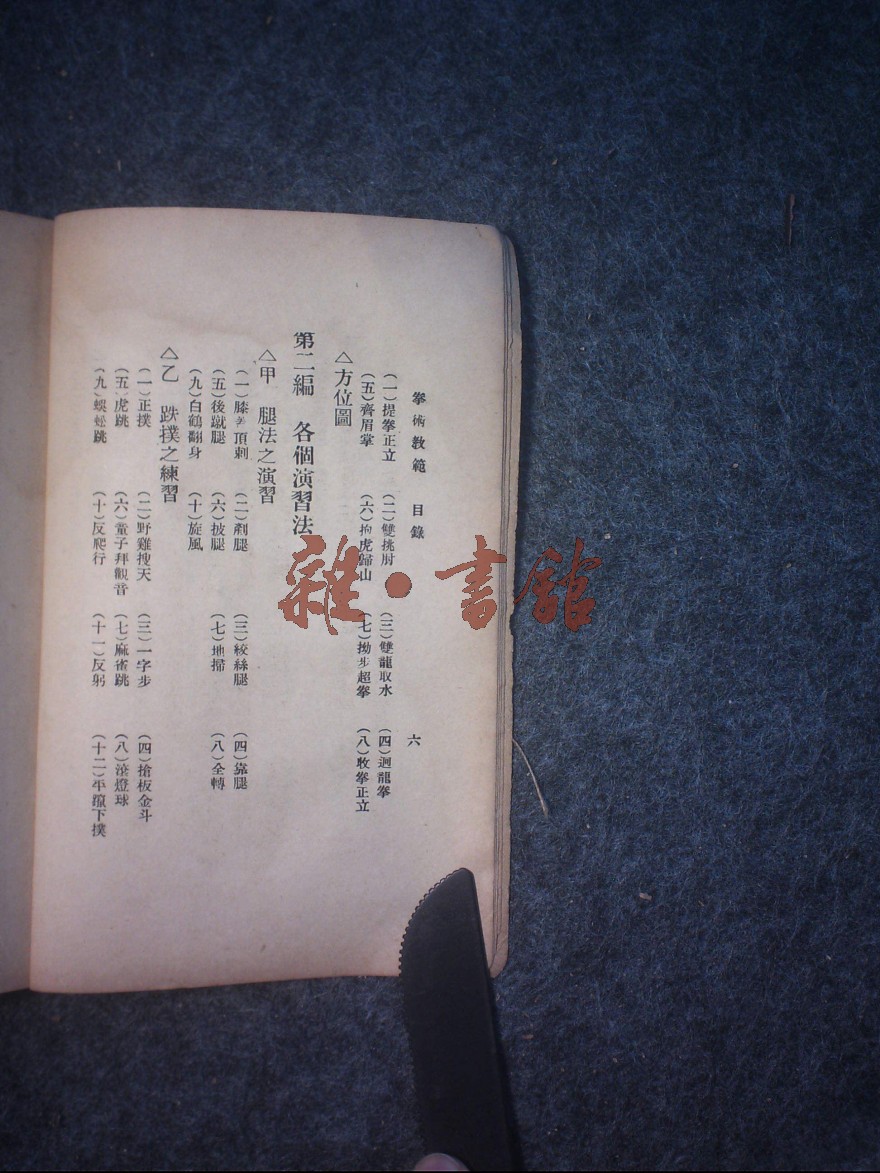 拳術教範　目錄　六
（一）提拳正立　（二）雙挑肘　（三）雙龍取水　（四）迴龍拳
（五）齊眉掌　（六）抱虎歸山　（七）拗步超拳　（八）收拳正立
△方位圖
第二編　各個演習法
△甲　腿法之演習
（一）膝頂刺　（二）剷腿　（三）絞絲腿　（四）靠腿
（五）後蹴腿　（六）披腿　（七）地掃　（八）全轉
（九）白鶴翻身　（十）旋風
△乙　跌撲之練習
（一）正撲　（二）野雞搜天　（三）一字步　（四）搶板金斗
（五）虎跳　（六）童子拜觀音　（七）麻雀跳　（八）滾燈球
（九）蜈蚣跳　（十）反爬行　（十一）反躬　（十二）平竄下撲
雜·書館